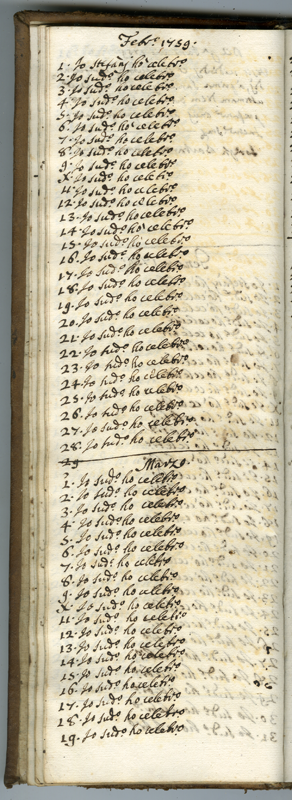 Febr.º 1759.
1. Jo Stefani ho celebrº
2. Jo sud.º ho celebrº
3. Jo sud.º ho celebrº
4. Jo sud.º ho celebrº
5. Jo sud.º ho celebrº
6. Jo sud.º ho celebrº
7. Jo sud.º ho celebrº
8. Jo sud.º ho celebrº
9. Jo sud.º ho celebrº
X. Jo sud.º ho celebrº
11. Jo sud.º ho celebrº
12. Jo sud.º ho celebrº
13. Jo sud.º ho celebrº
14. Jo sud.º ho celebrº
15. Jo sud.º ho celebrº
16. Jo sud.º ho celebrº
17. Jo sud.º ho celebrº
18. Jo sud.º ho celebrº
19. Jo sud.º ho celebrº
20. Jo sud.º ho celebrº
21. Jo sud.º ho celebrº
22. Jo sud.º ho celebrº
23. Jo sud.º ho celebrº
24. Jo sud.º ho celebrº
25. Jo sud.º ho celebrº
26. Jo sud.º ho celebrº
27. Jo sud.º ho celebrº
28. Jo sud.º ho celebrº
29
Marzo
1. Jo sud.º ho celebrº
2. Jo sud.º ho celebrº
3. Jo sud.º ho celebrº
4. Jo sud.º ho celebrº
5. Jo sud.º ho celebrº
6. Jo sud.º ho celebrº
7. Jo sud.º ho celebrº
8. Jo sud.º ho celebrº
9. Jo sud.º ho celebrº
X. Jo sud.º ho celebrº
11. Jo sud.º ho celebrº
12. Jo sud.º ho celebrº
13. Jo sud.º ho celebrº
14. Jo sud.º ho celebrº
15. Jo sud.º ho celebrº
16. Jo sud.º ho celebrº
17. Jo sud.º ho celebrº
18. Jo sud.º ho celebrº
19. Jo sud.º ho celebrº